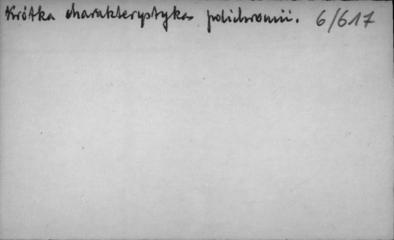 Krótka charakterystyka polichromii. 6/617